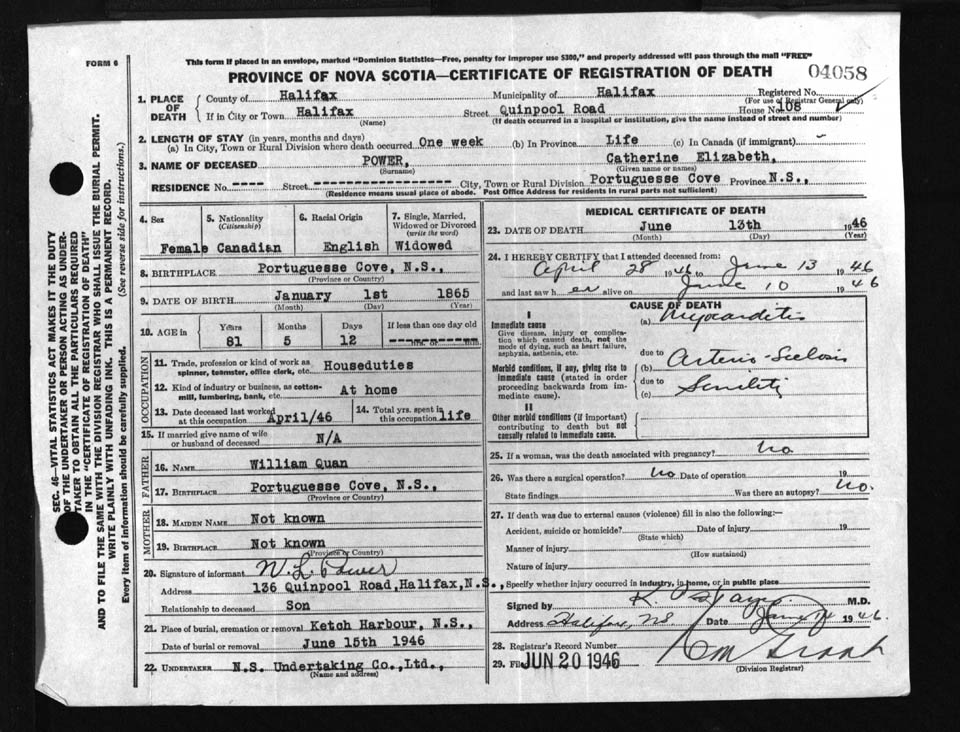 This form if placed in an envelope, marked "Dominion Statistics—Free, penalty for improper use $300," and properly addressed will pass through the mail "FREE"
FORM 6
PROVINCE OF NOVA SCOTIA—CERTIFICATE OF REGISTRATION OF DEATH
04058
SEC. 46—VITAL STATISTICS ACT MAKES IT THE DUTY
OF THE UNDERTAKER OR PERSON ACTING AS UNDER-
TAKER TO OBTAIN ALL THE PARTICULARS REQUIRED
IN THE "CERTIFICATE OF REGISTRATION OF DEATH"
AND TO FILE THE SAME WITH THE DIVISION REGISTRAR WHO SHALL ISSUE THE BURIAL PERMIT.
WRITE PLAINLY WITH UNFADING INK. THIS IS A PERMANENT RECORD.
Every item of information should be carefully supplied. (See reverse side for instructions.)
1. PLACE OF DEATH
County of Halifax Municipality of Halifax Registered No.
(For use of Registrar General only)
If in City or Town Halifax Street Quinpool Road House No. 108
(Name) (If death occurred in a hospital or institution, give the name instead of street and number)
2. LENGTH OF STAY (in years, months and days)
(a) In City, Town or Rural Division where death occurred One week (b) In Province Life (c) In Canada (if immigrant)
3. NAME OF DECEASED POWER, Catherine Elizabeth,
(Surname) (Given name or names)
RESIDENCE No. ---- Street ---- City, Town or Rural Division Portuguesse Cove Province N.S.,
(Residence means usual place of abode. Post Office Address for residents in rural parts not sufficient)
4. Sex
5. Nationality (Citizenship)
6. Racial Origin
7. Single, Married, Widowed or Divorced (write the word)
Female Canadian English Widowed
8. BIRTHPLACE Portuguesse Cove, N.S.,
(Province or Country)
9. DATE OF BIRTH January 1st 1865
(Month) (Day) (Year)
10. AGE in Years Months Days If less than one day old
81 5 12 -----hrs. or -----min.
OCCUPATION
11. Trade, profession or kind of work as spinner, teamster, office clerk, etc. Houseduties
12. Kind of industry or business, as cotton-mill, lumbering, bank, etc. At home
13. Date deceased last worked at this occupation April/46
14. Total yrs. spent in this occupation life
15. If married give name of wife or husband of deceased N/A
FATHER
16. NAME William Quan
17. BIRTHPLACE Portuguesse Cove, N.S.,
(Province or Country)
MOTHER
18. MAIDEN NAME Not known
19. BIRTHPLACE Not known
(Province or Country)
20. Signature of informant W. L. Power
Address 136 Quinpool Road, Halifax, N.S.,
Relationship to deceased Son
21. Place of burial, cremation or removal Ketch Harbour, N.S.,
Date of burial or removal June 15th 1946
22. UNDERTAKER N.S. Undertaking Co., Ltd.,
(Name and address)
MEDICAL CERTIFICATE OF DEATH
23. DATE OF DEATH June 13th 1946
(Month) (Day) (Year)
24. I HEREBY CERTIFY that I attended deceased from:
April 28 1946 to June 13 1946
and last saw her alive on June 10 1946
CAUSE OF DEATH
I
Immediate cause
Give disease, injury or complication which caused death, not the mode of dying, such as heart failure, asphyxia, asthenia, etc.
(a) Myocarditis
due to
Morbid conditions, if any, giving rise to immediate cause (stated in order proceeding backwards from immediate cause).
(b) Arterio-
due to
(c) Senility
II
Other morbid conditions (if important) contributing to death but not causally related to immediate cause.
25. If a woman, was the death associated with pregnancy? no
26. Was there a surgical operation? no Date of operation 19
State findings Was there an autopsy? no.
27. If death was due to external causes (violence) fill in also the following:—
Accident, suicide or homicide? Date of injury 19
(State which)
Manner of injury
(How sustained)
Nature of injury
Specify whether injury occurred in industry, in home, or in public place
Signed by M.D.
Address Halifax, N.S. Date June 14 1946.
28. Registrar's Record Number
29. JUN 20 1946
(Division Registrar)